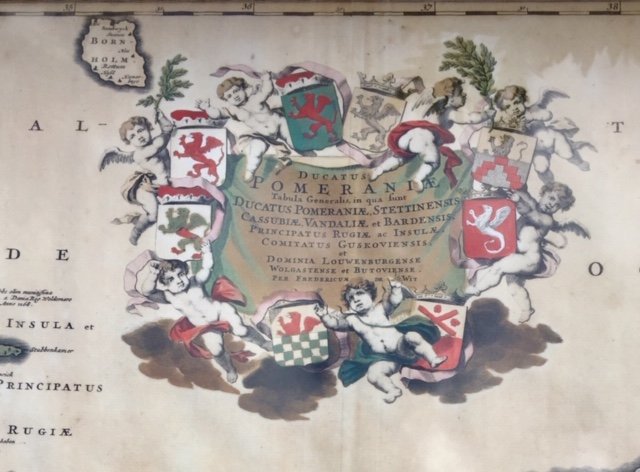 35
36
37
38
BORN
HOLM
Rottum
A L-
T
DUCATUS
POMERANIÆ
Tabula Generalis, in qua sunt
DUCATUS POMERANIÆ, STETTINENSIS
CASSUBIÆ, VANDALIÆ, et BARDENSIS,
PRINCIPATUS RUGIÆ ac INSULÆ,
COMITATUS GUSKOVIENSIS,
et
DOMINIA LOUWENBURGENSE
WOLGASTENSE et BUTOVIENSE.
PER FREDERICUM DE WIT
D E
O
INSULA et
Stubbenkamer
PRINCIPATUS
RUGIÆ